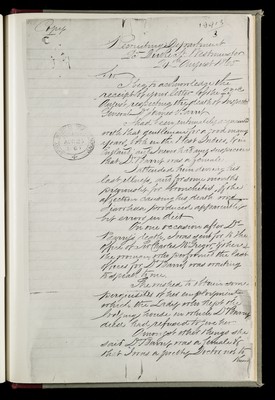 Copy
Recruiting Department
Westminster
24th August 1865
Sir
I beg to acknowledge the
receipt of your letter of the 23rd
August, respecting the death of Inspector
General Dr James Barry.
I had been intimately acquainted
with that gentleman for a good many
years, both in the West Indies, &
England, and I never had any suspicion
that Dr Barry was a female
I attended him during his
last illness, and for some months
previously for bronchitis, & the
affection causing his death was
diarrhoea produced apparently
by errors in diet
On one occasion after Dr
Barry's death I was sent for to the
office of Sir Charles McGregor, & there
the woman who performed the last
offices for Dr Barry was waiting
to speak to me.
She wished to obtain some
perquisites of her employment
which the Lady who kept the
lodging house in which Dr Barry
died had refused to give her
Amongst other things she
said Dr Barry was a female &
that I was a pretty Doctor not to
know